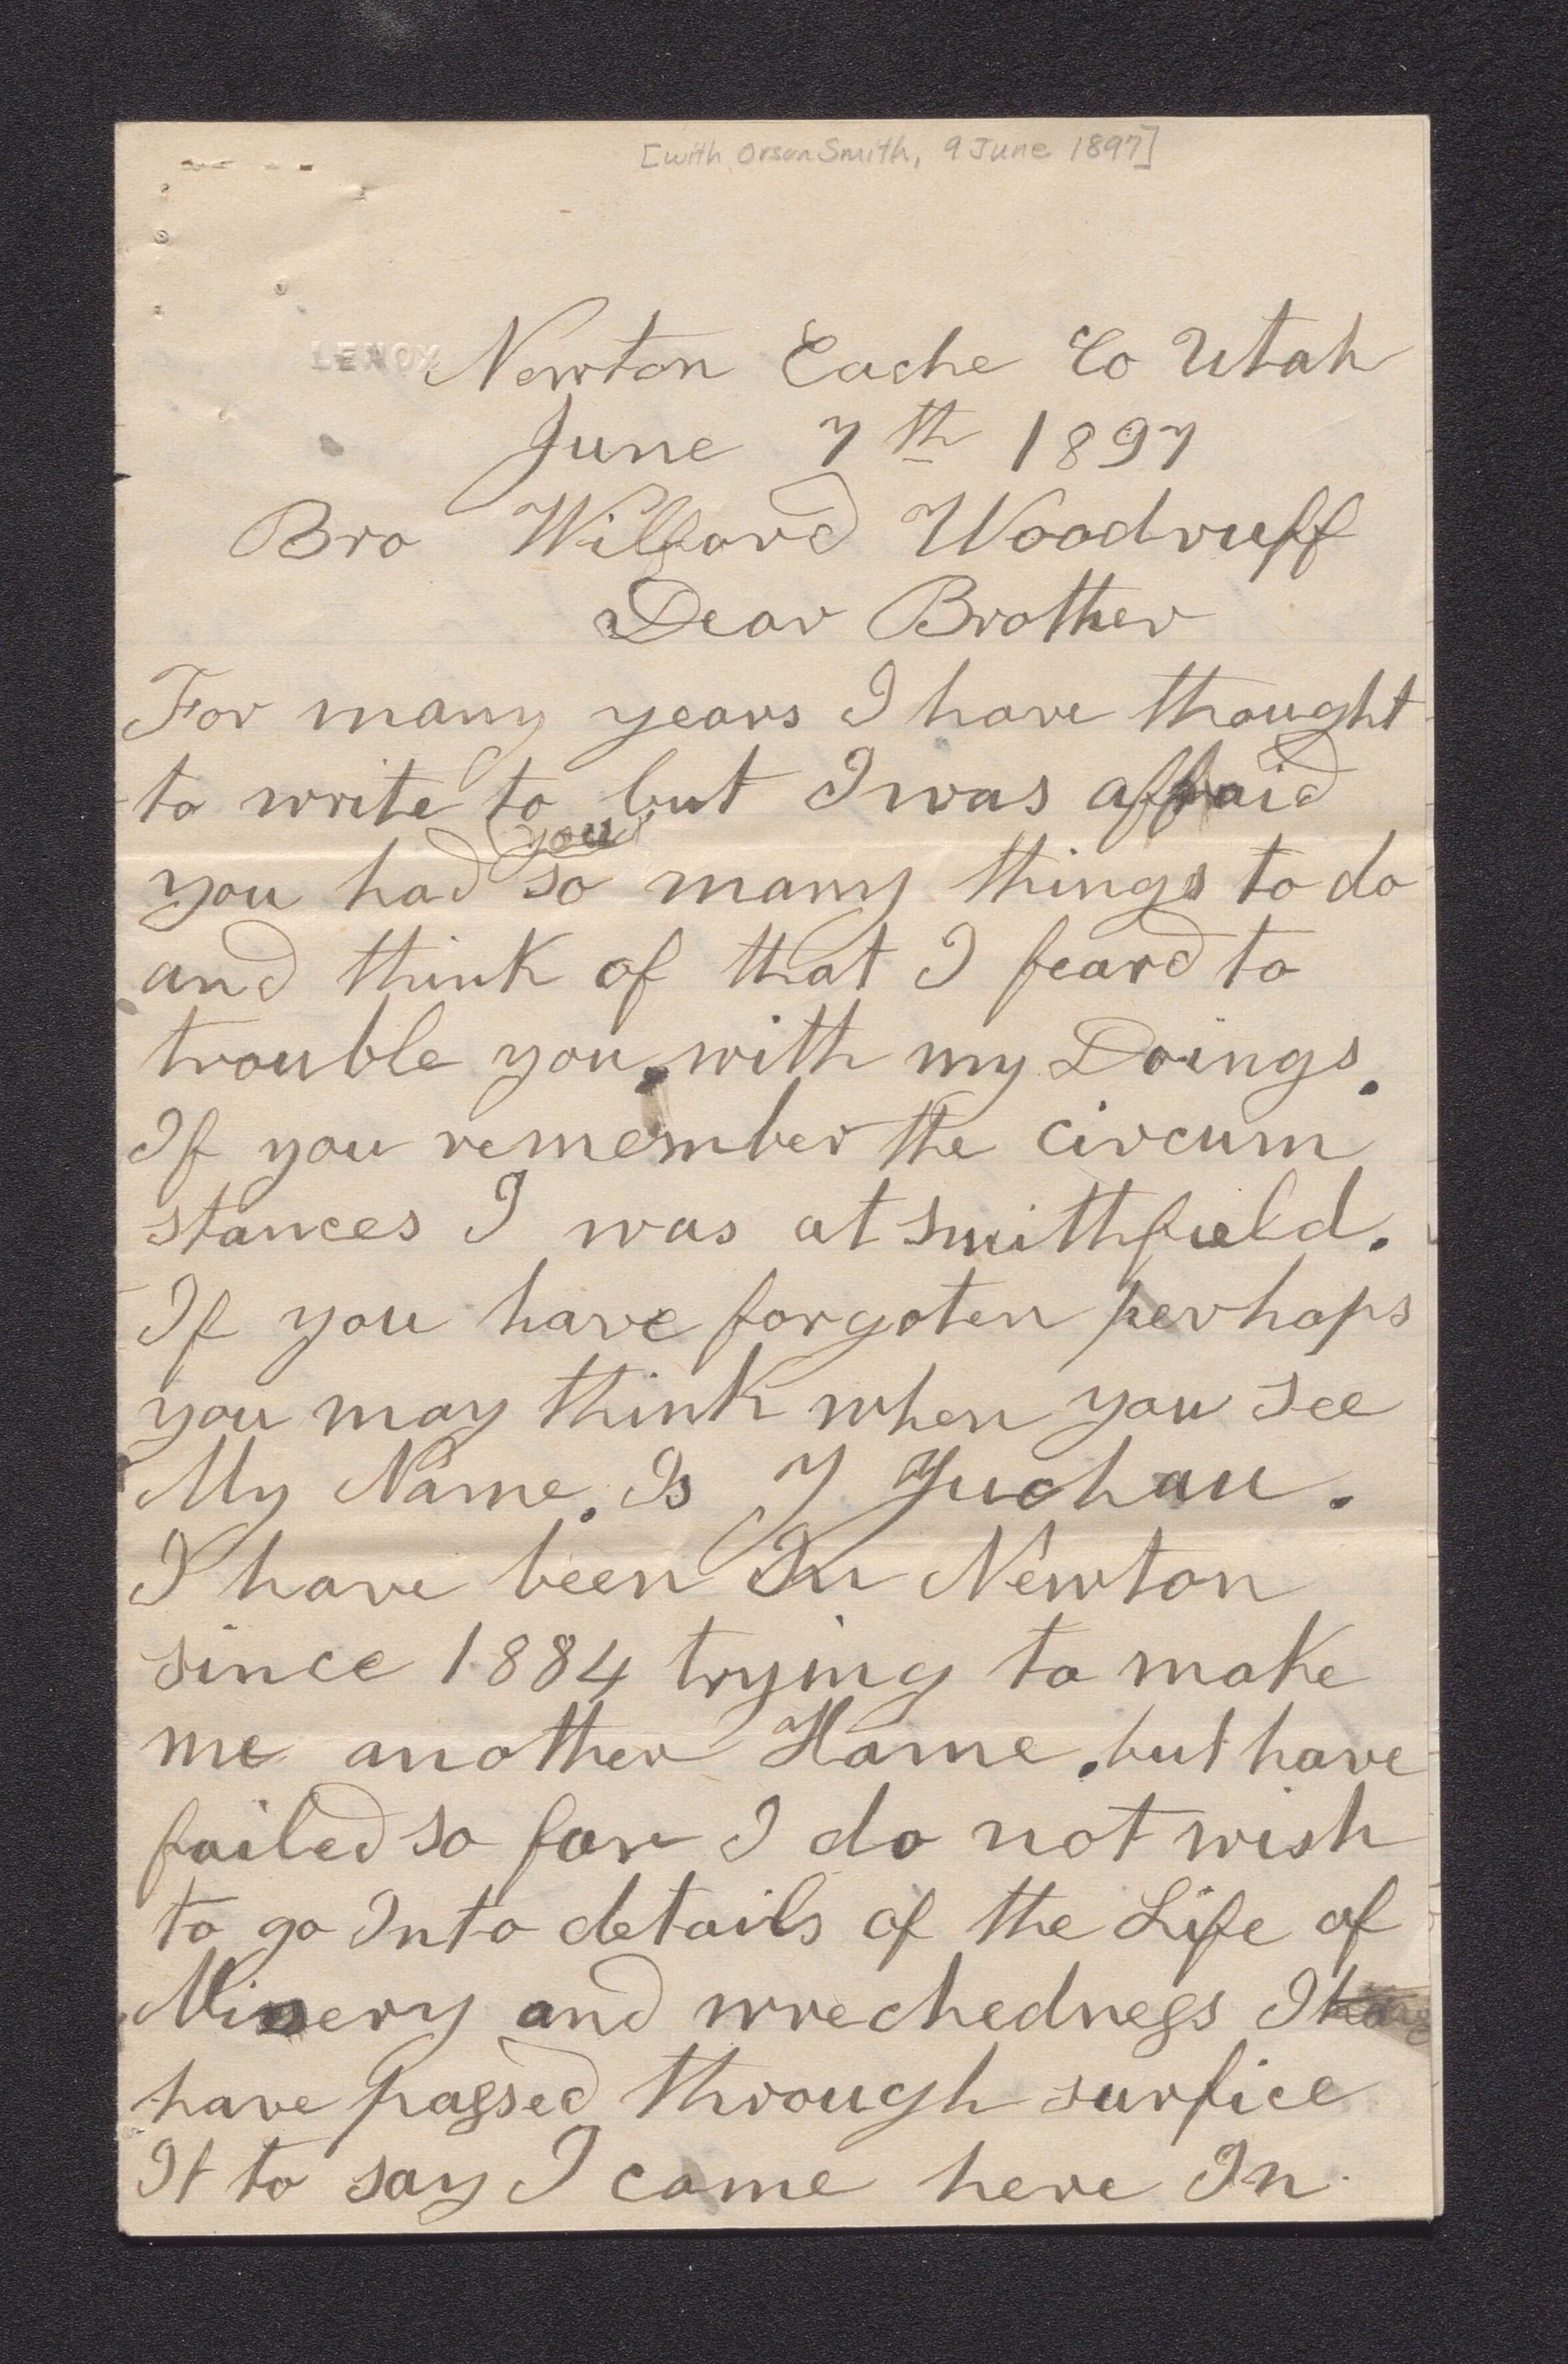 [with Orson Smith, 9 June 1897]
LENOX
Newton Cache Co Utah
June 7th 1897
Bro Wilford Woodruff
Dear Brother
For many years I have thought
to write to you but I was affraid
you had so many things to do
and think of that I feard to
trouble you, with my Doings.
If you remember the circum
stances I was at Smithfield.
If you have forgoten perhaps
you may think when you see
My Name. Is Y Yuchau.
I have been In Newton
since 1884 trying to make
me another Home. but have
failed so far I do not wish
to go Into details of the Life of
Misery and wrechedness I
have passed through surfice
It to say I came here In